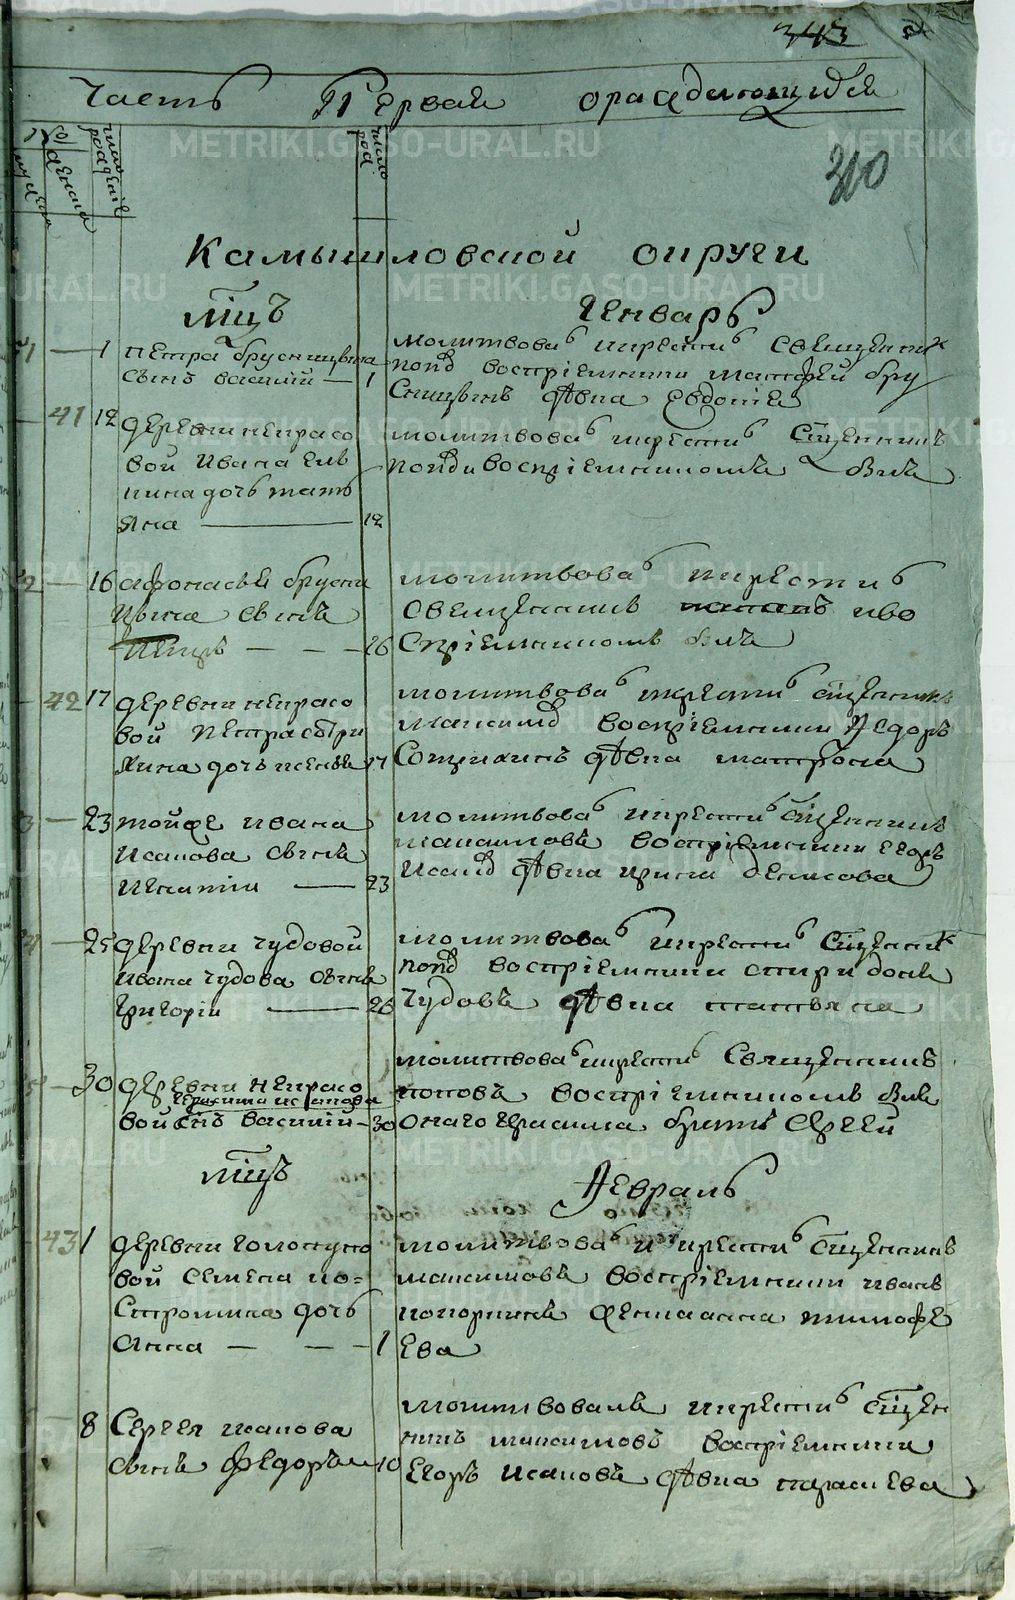 343
Часть Первая ораждающихся
310
число рождение
число рож
Камышловской округи
мцъ Генварь
51 — 1 Петра брусницына
сынъ василий — 1
молитвовал и крестил священник
попов восприемники матфей бру
сницынъ девица Евдокия
41 12 деревни некрасо
вой Ивана
дочь тать
яна — 12
молитвовал и крестил сщенникъ
попов восприемникомъ былъ
52 — 16 Афонасья брусни
цына сынъ
— — — 26
молитвовал и крестил
священникъ попов и во
сприемникомъ былъ
42 17 деревни некрасо
вой Петра
дочь ксенья 17
молитвовал и крестил сщенникъ
максимов восприемники Федоръ
девица матрона
53 — 23 тойже ивана
исакова сынъ
игнатий — 23
молитвовал и крестил сщенникъ
максимовъ восприемники егоръ
исаков девица ирина денисова
54 — 25 деревни чудовой
ивана чудова сынъ
григорий — 26
молитвовал и крестил сщенник
попов восприемники спиридонъ
чудовъ девица татьяна
55 — 30 деревни некрасо
герасима исакова
вой снъ василий — 30
молитвовал и крестил священникъ
поповъ восприемникомъ былъ
оного герасима братъ Сергей
мцъ Февраль
43 1 деревни голопупо
вой семена по=
стропина дочь
Анна — — — 1
молитвовал и крестил сщенникъ
максимовъ восприемники иванъ
анна тимофе
ева
8 Сергея исакова
сынъ федоръ — 10
молитвовалъ и крестил сщен
никъ максимовъ восприемники
Егоръ исаковъ девица параскева
METRIKI.GASO-URAL.RU